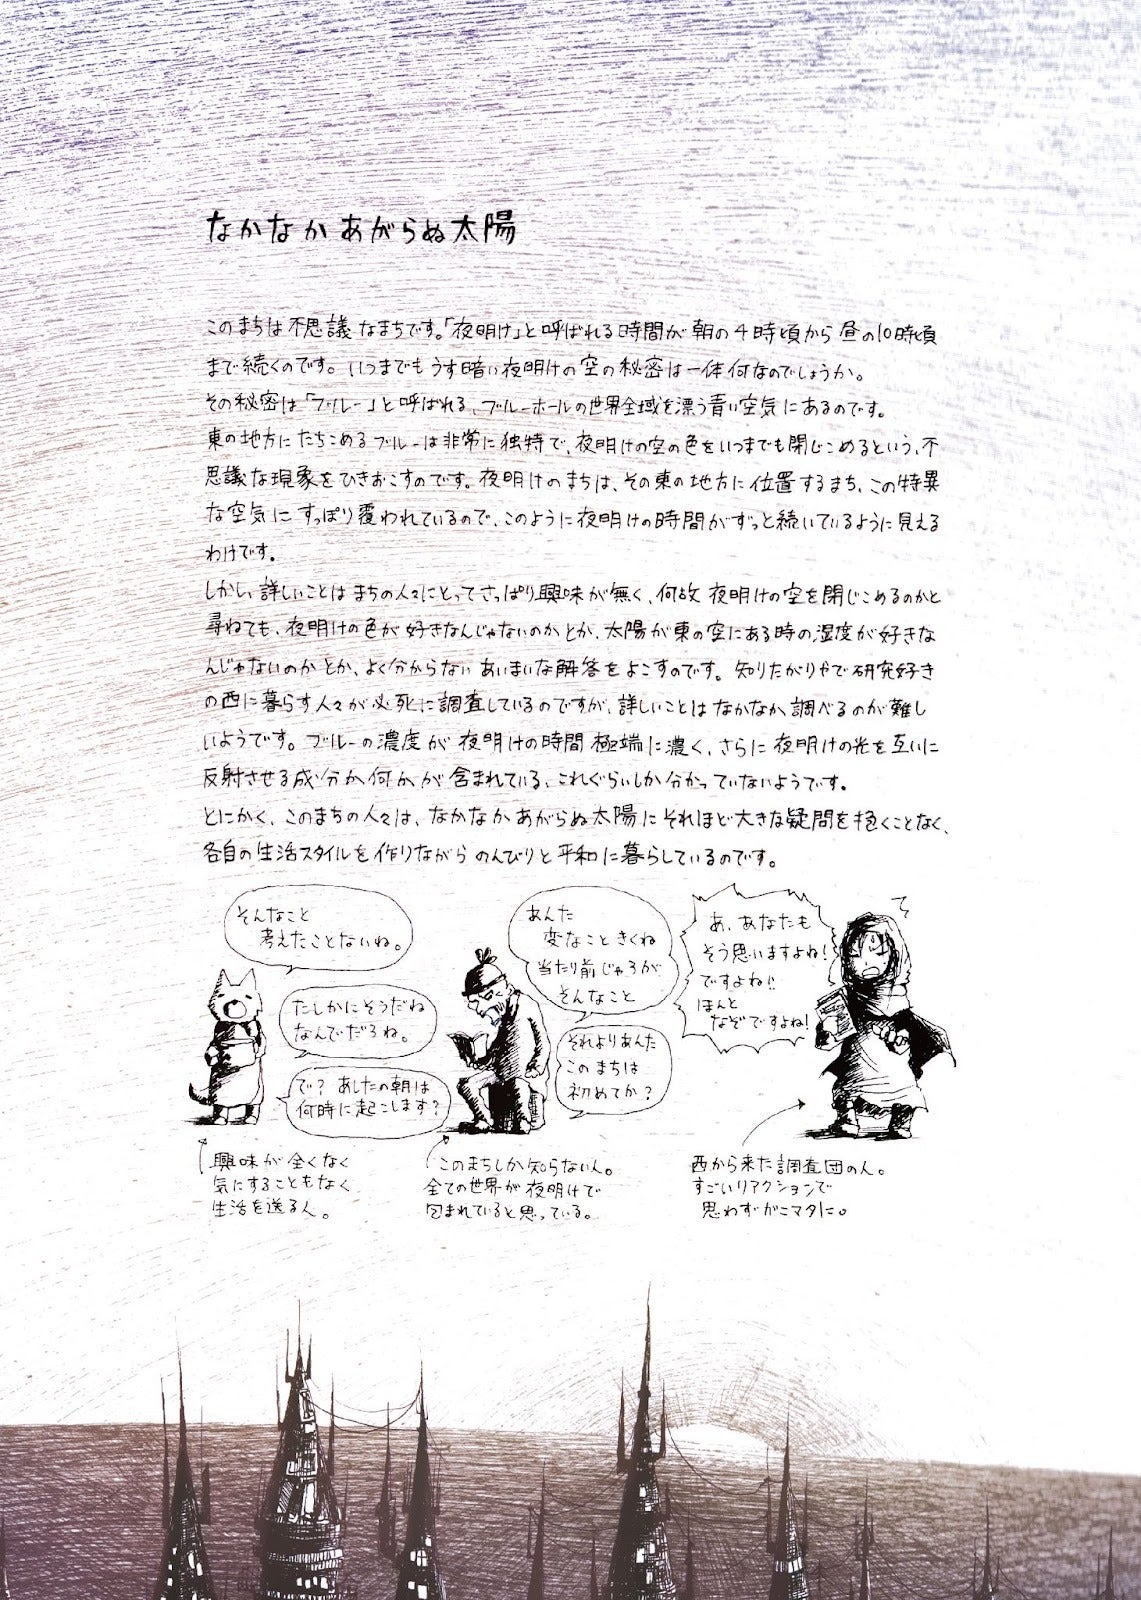 なかなかあがらぬ太陽
このまちは不思議なまちです。「夜明け」と呼ばれる時間が朝の4時頃から昼の10時頃
まで続くのです。いつまでもうす暗い夜明けの空の秘密は一体何なのでしょうか。
その秘密は「ブルー」と呼ばれる、ブルーホールの世界全域を漂う青い空気にあるのです。
東の地方にたちこめるブルーは非常に独特で、夜明けの空の色をいつまでも閉じこめるという、不
思議な現象をひきおこすのです。夜明けのまちは、その東の地方に位置するまち、この特異
な空気にすっぽり覆われているので、このように夜明けの時間がずっと続いているように見える
わけです。
しかし、詳しいことはまちの人々にとってさっぱり興味が無く、何故夜明けの空を閉じこめるのかと
尋ねても、夜明けの色が好きなんじゃないのかとか、太陽が東の空にある時の湿度が好きな
んじゃないのかとか、よく分からないあいまいな解答をよこすのです。知りたがりやで研究好き
の西に暮らす人々が必死に調査しているのですが、詳しいことはなかなか調べるのが難し
いようです。ブルーの濃度が夜明けの時間極端に濃く、さらに夜明けの光を互いに
反射させる成分か何かが含まれている、これぐらいしか分かっていないようです。
とにかく、このまちの人々は、なかなかあがらぬ太陽にそれほど大きな疑問を抱くことなく、
各自の生活スタイルを作りながらのんびりと平和に暮らしているのです。
そんなこと
考えたことないね。
たしかにそうだね
なんでだろね。
で？あしたの朝は
何時に起こします？
興味が全くなく
気にすることもなく
生活を送る人。
あんた
変なこときくね
当たり前じゃろが
そんなこと
それよりあんた
このまちは
初めてか？
このまちしか知らない人。
全ての世界が夜明けで
包まれていると思っている。
あ、あなたも
そう思いますよね！
ですよね!!
ほんと
なぞですよね！
西から来た調査団の人。
すごいリアクションで
思わずがニマタに。